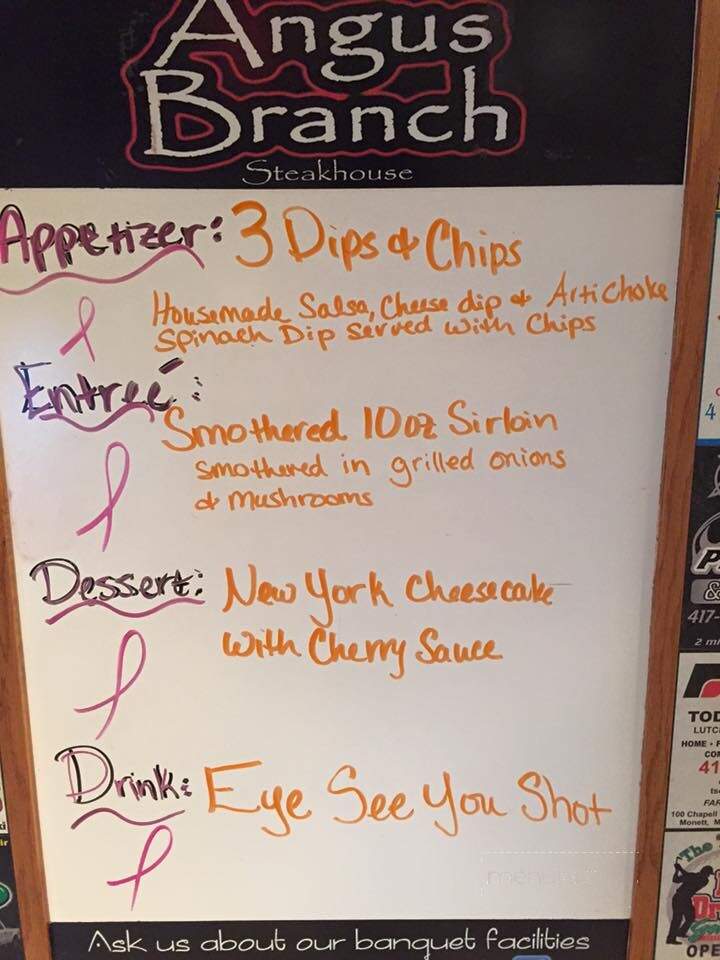 Angus
Branch
Steakhouse
Appetizer: 3 Dips & Chips
Housemade Salsa, Cheese dip & Artichoke
Spinach Dip served with Chips
Entreé:
Smothered 10oz Sirloin
smothered in grilled onions
& mushrooms
Dessert: New York Cheesecake
with Cherry Sauce
Drink: Eye See You Shot
Ask us about our banquet facilities
4
P
&
417-
2 mi
TOD
LUTC
HOME • F
CO
41
ts
FA
100 Chapell
Monett, M
The
OPE